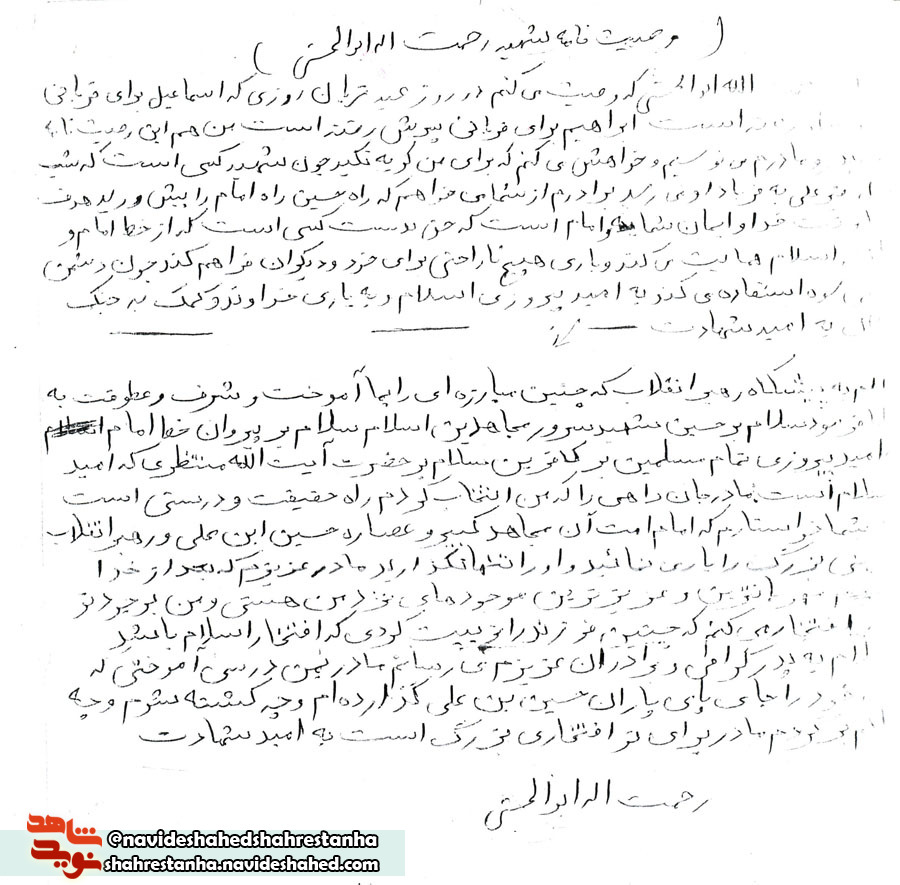 ( وصیت نامه شهید رحمت اله ابوالحسنی )
الله ابوالحسنی که وصیت می کنم در روز عید قربان روزی که اسماعیل برای قربانی
است ابراهیم برای قربانی پیویش رفته است من هم این وصیت نامه
و مادرم می نویسیم و خواهش می کنم که برای من گریه نکنید چون شهید کسی است که
علی به فریاد او می رسد برادرم از شما می خواهم که راه حسین راه امام را پیش ورید هدف
خدا و ایمان شما به امام است که حق بدست کسی است که از خط امام و
اسلام حمایت می کند و باری هیچ ناراحتی برای خود و دیگران فراهم نکند چون دشمن
استفاده می کند به امید پیروزی اسلام و به یاری خداوند و کمک به جنگ
به امید شهادت
به پیشگاه رهبر انقلاب که چنین مبارزه ای را بما آموخت و شرف و عطوفت به
سلام بر حسین شهید سرور مجاهدین اسلام سلام بر پیروان خط امام
امید پیروزی تمام مسلمین بر کافرین سلام بر حضرت آیت الله منتظری که امید
است مادر جان راهی را که من انتخاب کردم راه حقیقت و درستی است
شما خواستارم که امام امت آن مجاهد کبیر و عصاره حسین ابن علی و رهبر انقلاب
بزرگ را یاری نمائید و او را تنها نگذارید مادر عزیزم که بعد از خدا
و عزیزترین موجودهای نزد من هستی و من بوجود تو
افتخار می کنم که چنین فرزندی را تربیت کردی که افتخار اسلام باشد
به پدر گرامی و برادران عزیزم می رسانم مادر بمن درسی آموختی که
را جای پای یاران حسین بن علی گذارده ام و چه کشته شوم و چه
مادر برای تو افتخاری بزرگ است به امید شهادت
رحمت اله ابوالحسنی
شاهد
نوید
@navideshahedshahrestanha
shahrestanha.navideshahed.com